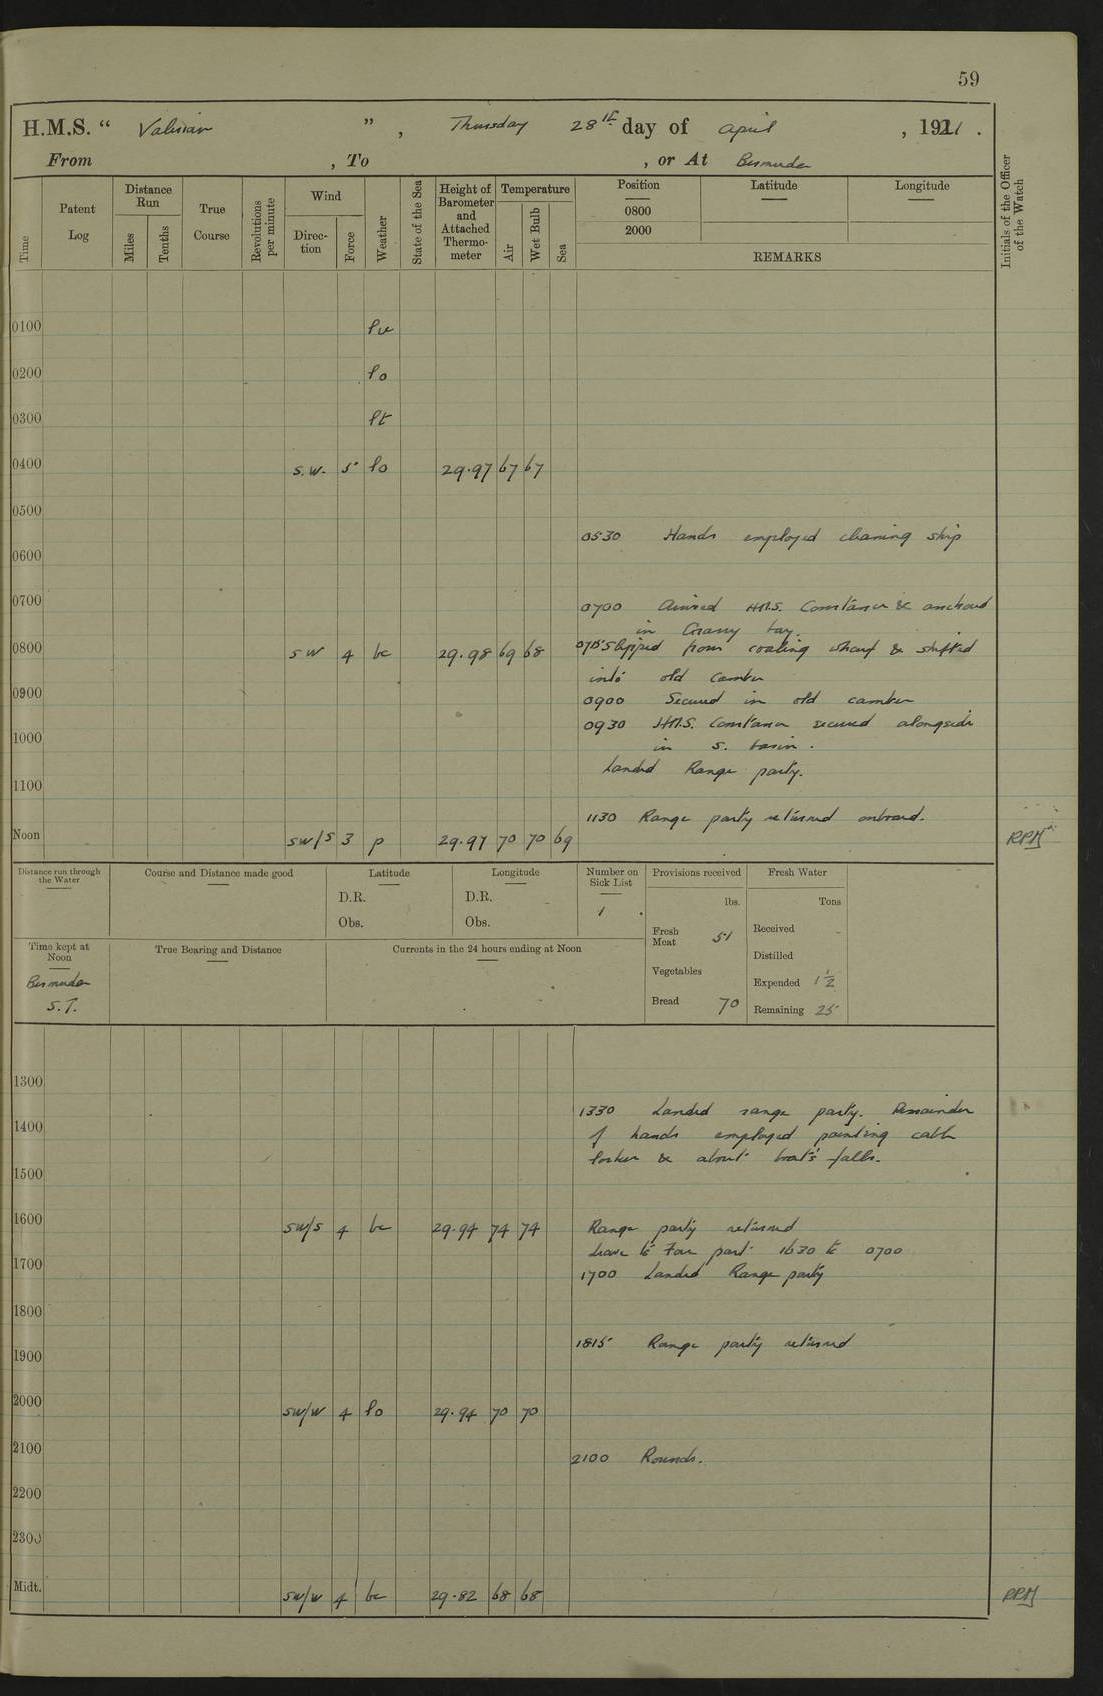 59
H.M.S. “ Valerian ” , Thursday 28th day of April , 1921 .
From , To , or At Bermuda
Time
Patent Log
Distance Run
Miles
Tenths
True Course
Revolutions per minute
Wind
Direc-tion
Force
Weather
State of the Sea
Height of Barometer and Attached Thermo-meter
Temperature
Air
Wet Bulb
Sea
Position
0800
2000
Latitude
Longitude
REMARKS
Initials of the Officer of the Watch
0100
0200
0300
0400 S.W. 5 67 67 29.97
0500
0530 Hands employed cleaning ship
0600
0700
0700 Arrived H.M.S. Constance & anchored
in Grassy bay.
0800 SW 4 bc 29.98 69 68
0715 Slipped from coaling wharf & shifted
into old camber
0900
0900 Secured in old camber
0930 H.M.S. Constance secured alongside
1000
in S. basin.
Landed Range party.
1100
1130 Range party returned onboard.
Noon SW/S 3 p 29.97 70 70 69
Distance run through the Water
Course and Distance made good
Latitude
D.R.
Obs.
Longitude
D.R.
Obs.
Number on Sick List
1
Provisions received
lbs.
Fresh Meat 51
Vegetables
Bread 70
Fresh Water
Tons
Received
Distilled
Expended 1½
Remaining 25
Time kept at Noon
Bermuda
S.T.
True Bearing and Distance
Currents in the 24 hours ending at Noon
1300
1330 Landed range party. Remainder
1400
of hands employed painting cable
locker & about boats' falls.
1500
1600 SW/S 4 bc 29.94 74 74
Range party returned
Leave to part 1630 to 0700
1700
1700 Landed Range party
1800
1815 Range party returned
1900
2000 SW/W 4 29.94 70 70
2100
2100 Rounds.
2200
2300
Midt. SW/W 4 bc 29.82 68 68